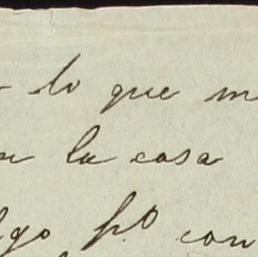 lo que m
n la casa
lgo p.º con